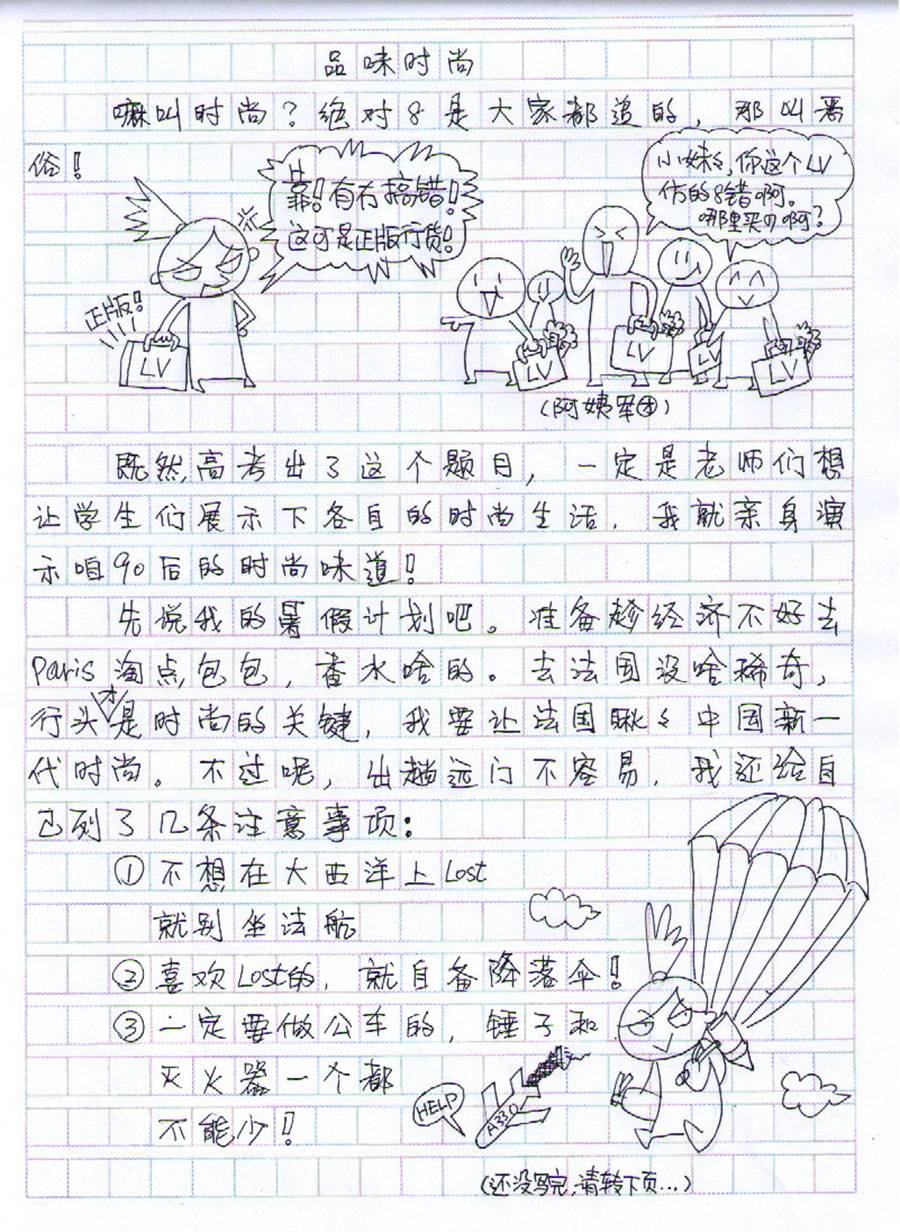 品味时尚
嘛叫时尚？绝对8是大家都追的，那叫恶
俗！
靠！有冇搞错！
这可是正版行货！
小妹々，你这个LV
仿的8错啊。
哪里买の啊？
正版！
LV
LV
LV
LV
LV
（阿姨军团）
既然高考出了这个题目，一定是老师们想
让学生们展示下各自的时尚生活，我就亲身演
示咱90后的时尚味道！
先说我的暑假计划吧。准备趁经济不好去
Paris淘点包包，香水啥的。去法国没啥稀奇，
行头才是时尚的关键，我要让法国瞅々中国新一
代时尚。不过呢，出趟远门不容易，我还给自
己列了几条注意事项：
①不想在大西洋上Lost
就别坐法航
②喜欢Lost的，就自备降落伞！
③一定要做公车的，锤子和
灭火器一个都
不能少！
HELP
A330
（还没写完，请转下页…）